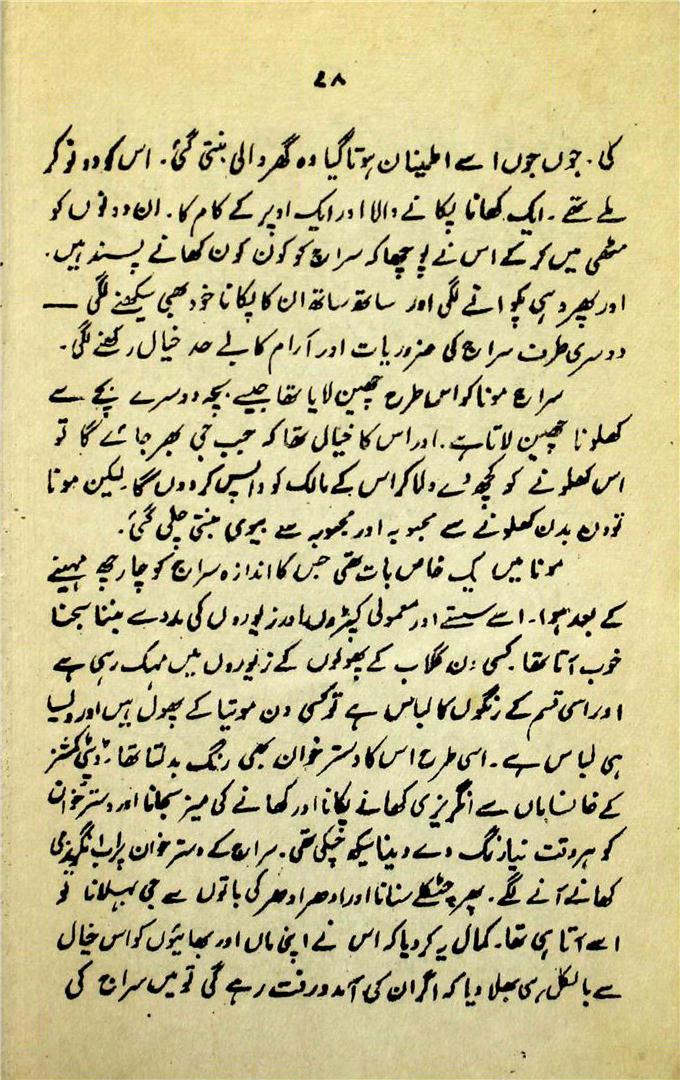 ۶۸
کی۔ جوں جوں اسے اطمینان ہوتا گیا وہ گھر والی بنتی گئی۔ اس کو دو نوکر
ملے تھے۔ ایک کھانا پکانے والا اور ایک اوپر کے کام کا۔ ان دونوں کو
مٹھی میں کر کے اس نے پوچھا کہ سراج کو کون کون کھانے پسند ہیں۔
اور پھر وہی پکوانے لگی اور ساتھ ساتھ ان کا پکانا خود بھی سیکھنے لگی —
دوسری طرف سراج کی ضروریات اور آرام کا بے حد خیال رکھنے لگی۔
سراج مونا کو اس طرح چھین لایا تھا جیسے بچہ دوسرے بچے سے
کھلونا چھین لاتا ہے۔ اور اس کا خیال تھا کہ جب جی بھر جائے گا تو
اس کھلونے کو کچھ دے دلا کر اس کے مالک کو واپس کر دوں گا۔ لیکن مونا
تو دن بدن کھلونے سے محبوبہ اور محبوبہ سے بیوی بنتی چلی گئی۔
مونا میں یک خاص بات تھی جس کا اندازہ سراج کو چار چھ مہینے
کے بعد ہوا۔ اسے سستے اور معمولی کپڑوں اور زیوروں کی مدد سے بننا سجنا
خوب آتا تھا۔ کسی دن گلاب کے پھولوں کے زیوروں میں مہک رہی ہے
اور اسی قسم کے رنگوں کا لباس ہے تو کسی دن موتیا کے پھول ہیں اور ویسا
ہی لباس ہے۔ اسی طرح اس کا دسترخوان بھی رنگ بدلتا تھا۔ ڈپٹی کمشنر
کے خانساماں سے انگریزی کھانے پکانا اور کھانے کی میز سجانا اور دسترخوان
کو ہر وقت نیا رنگ دے دینا سیکھ چکی تھی۔ سراج کے دسترخوان پر اب انگریزی
کھانے آنے لگے۔ پھر چٹکلے سنانا اور ادھر ادھر کی باتوں سے جی بہلانا تو
اسے آتا ہی تھا۔ کمال یہ کر دیا کہ اس نے اپنی ماں اور بھائیوں کو اس خیال
سے بالکل ہی بھلا دیا کہ اگر ان کی آمد و رفت رہے گی تو میں سراج کی